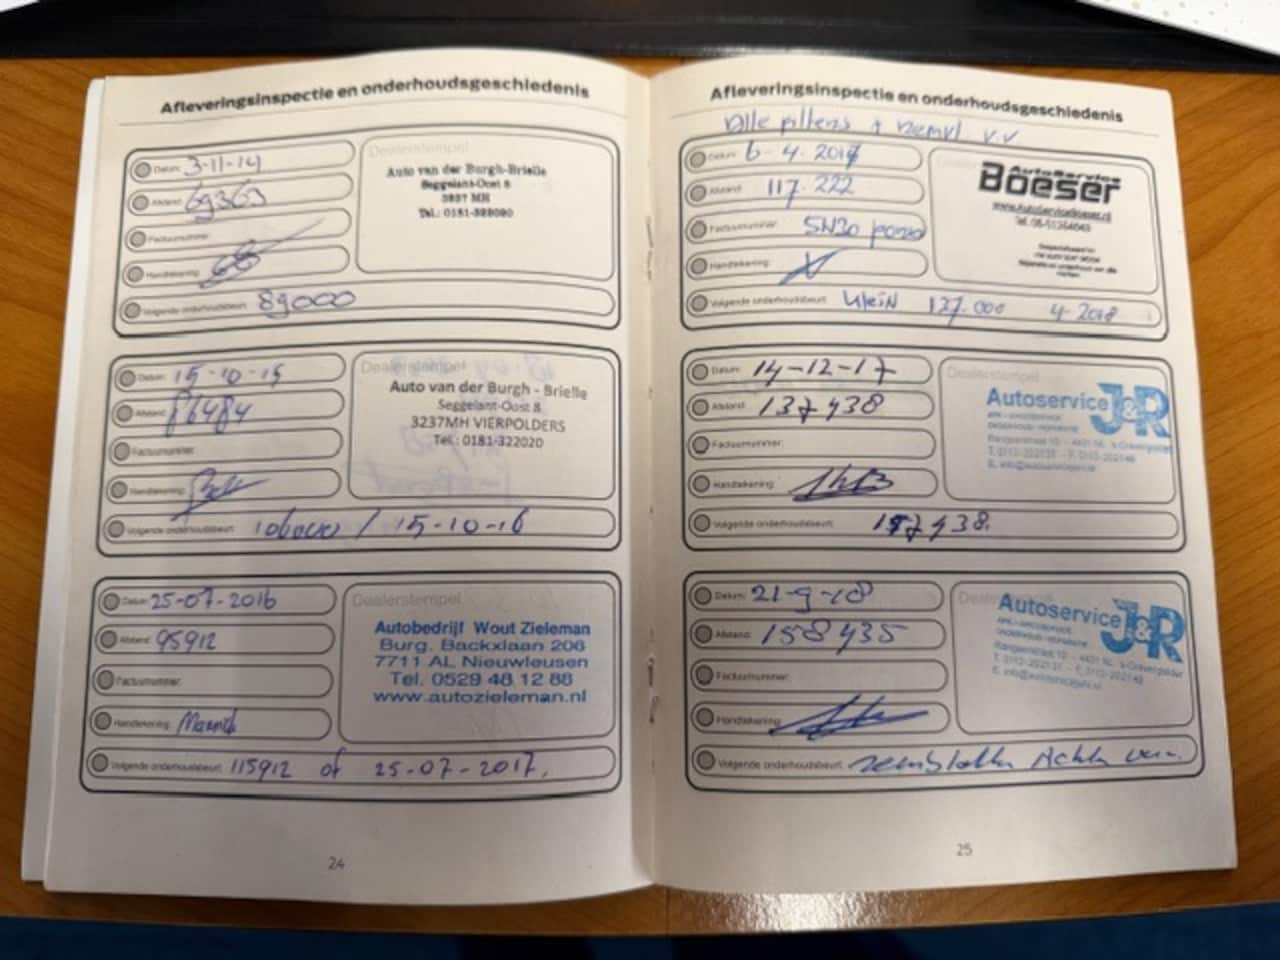 Afleveringsinspectie en onderhoudsgeschiedenis
Datum: 3-11-14
Afstand: 69363
Factuurnummer:
Handtekening:
Volgende onderhoudsbeurt: 89000
Dealerstempel
Auto van der Burgh-Brielle
Seggelant-Oost 8
3237 MH
Tel.: 0181-322020
Datum: 15-10-15
Afstand: 86484
Factuurnummer:
Handtekening:
Volgende onderhoudsbeurt: 106000 / 15-10-16
Dealerstempel
Auto van der Burgh - Brielle
Seggelant-Oost 8
3237MH VIERPOLDERS
Tel.: 0181-322020
Datum: 25-07-2016
Afstand: 95912
Factuurnummer:
Handtekening:
Volgende onderhoudsbeurt: 115912 of 25-07-2017.
Dealerstempel
Autobedrijf Wout Zieleman
Burg. Backxlaan 206
7711 AL Nieuwleusen
Tel. 0529 48 12 88
www.autozieleman.nl
24
Afleveringsinspectie en onderhoudsgeschiedenis
Alle filters + remvl. v.v
Datum: 6-4-2017
Afstand: 117.222
Factuurnummer: 5N30
Handtekening:
Volgende onderhoudsbeurt: klein 137.000 4-2018
AutoService
Boeser
www.AutoServiceBoeser.nl
Datum: 14-12-17
Afstand: 137438
Factuurnummer:
Handtekening:
Volgende onderhoudsbeurt: 157438.
Dealerstempel
Autoservice J&R
Datum: 21-9-18
Afstand: 158435
Factuurnummer:
Handtekening:
Volgende onderhoudsbeurt: remblokken Achter
Dealerstempel
Autoservice J&R
25